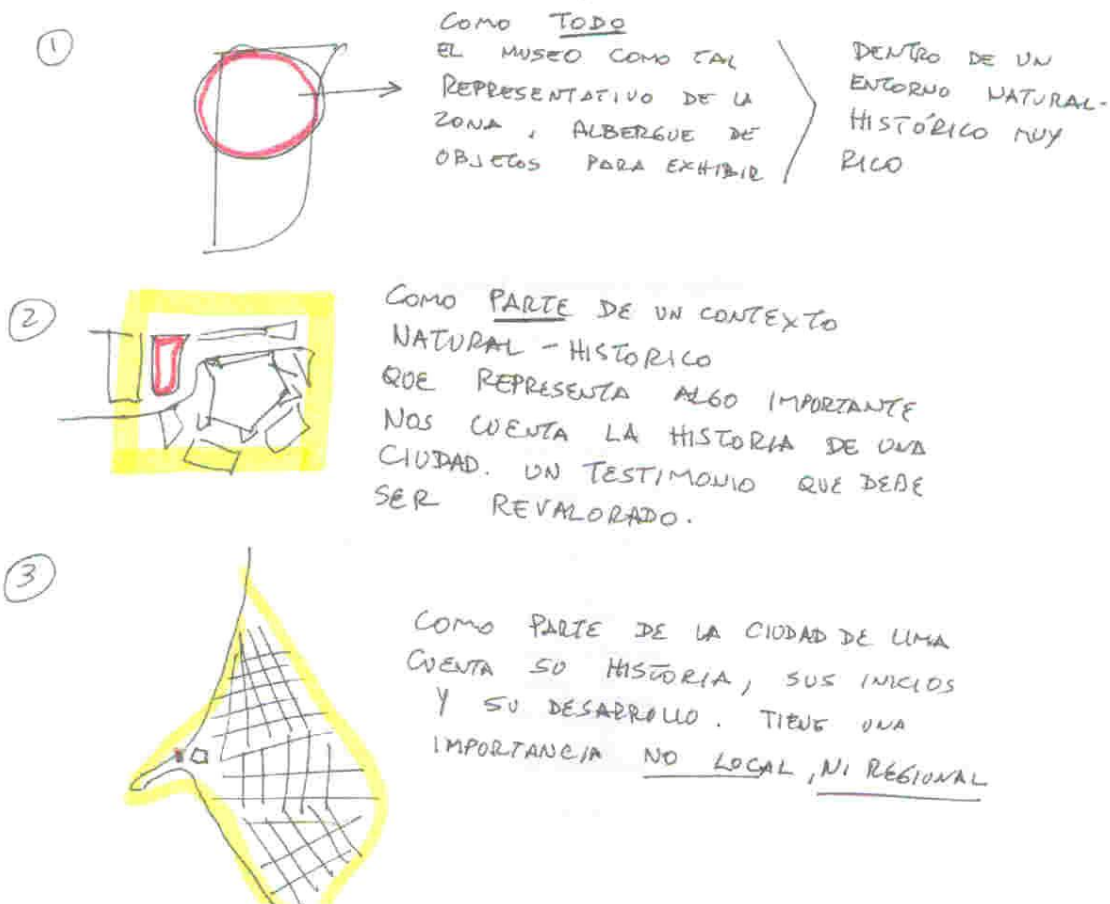 1
COMO TODO
EL MUSEO COMO TAL
REPRESENTATIVO DE LA
ZONA, ALBERGUE DE
OBJETOS PARA EXHIBIR
DENTRO DE UN
ENTORNO NATURAL-
HISTÓRICO MUY
RICO
2
COMO PARTE DE UN CONTEXTO
NATURAL - HISTORICO
QUE REPRESENTA ALGO IMPORTANTE
NOS CUENTA LA HISTORIA DE UNA
CIUDAD. UN TESTIMONIO QUE DEBE
SER REVALORADO.
3
COMO PARTE DE LA CIUDAD DE LIMA
CUENTA SU HISTORIA, SUS INICIOS
Y SU DESARROLLO. TIENE UNA
IMPORTANCIA NO LOCAL, NI REGIONAL